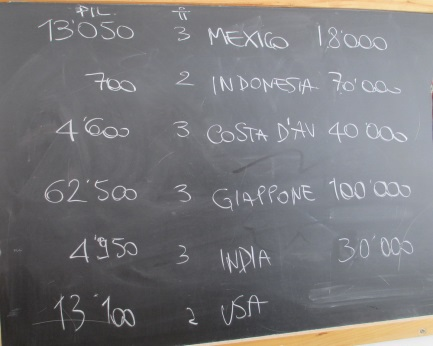 PIL. π
13'050 3 MEXICO 18'000
700 2 INDONESIA 70'000
4'600 3 COSTA D'AV 40'000
62'500 3 GIAPPONE 100'000
4'950 3 INDIA 30'000
13'100 2 USA